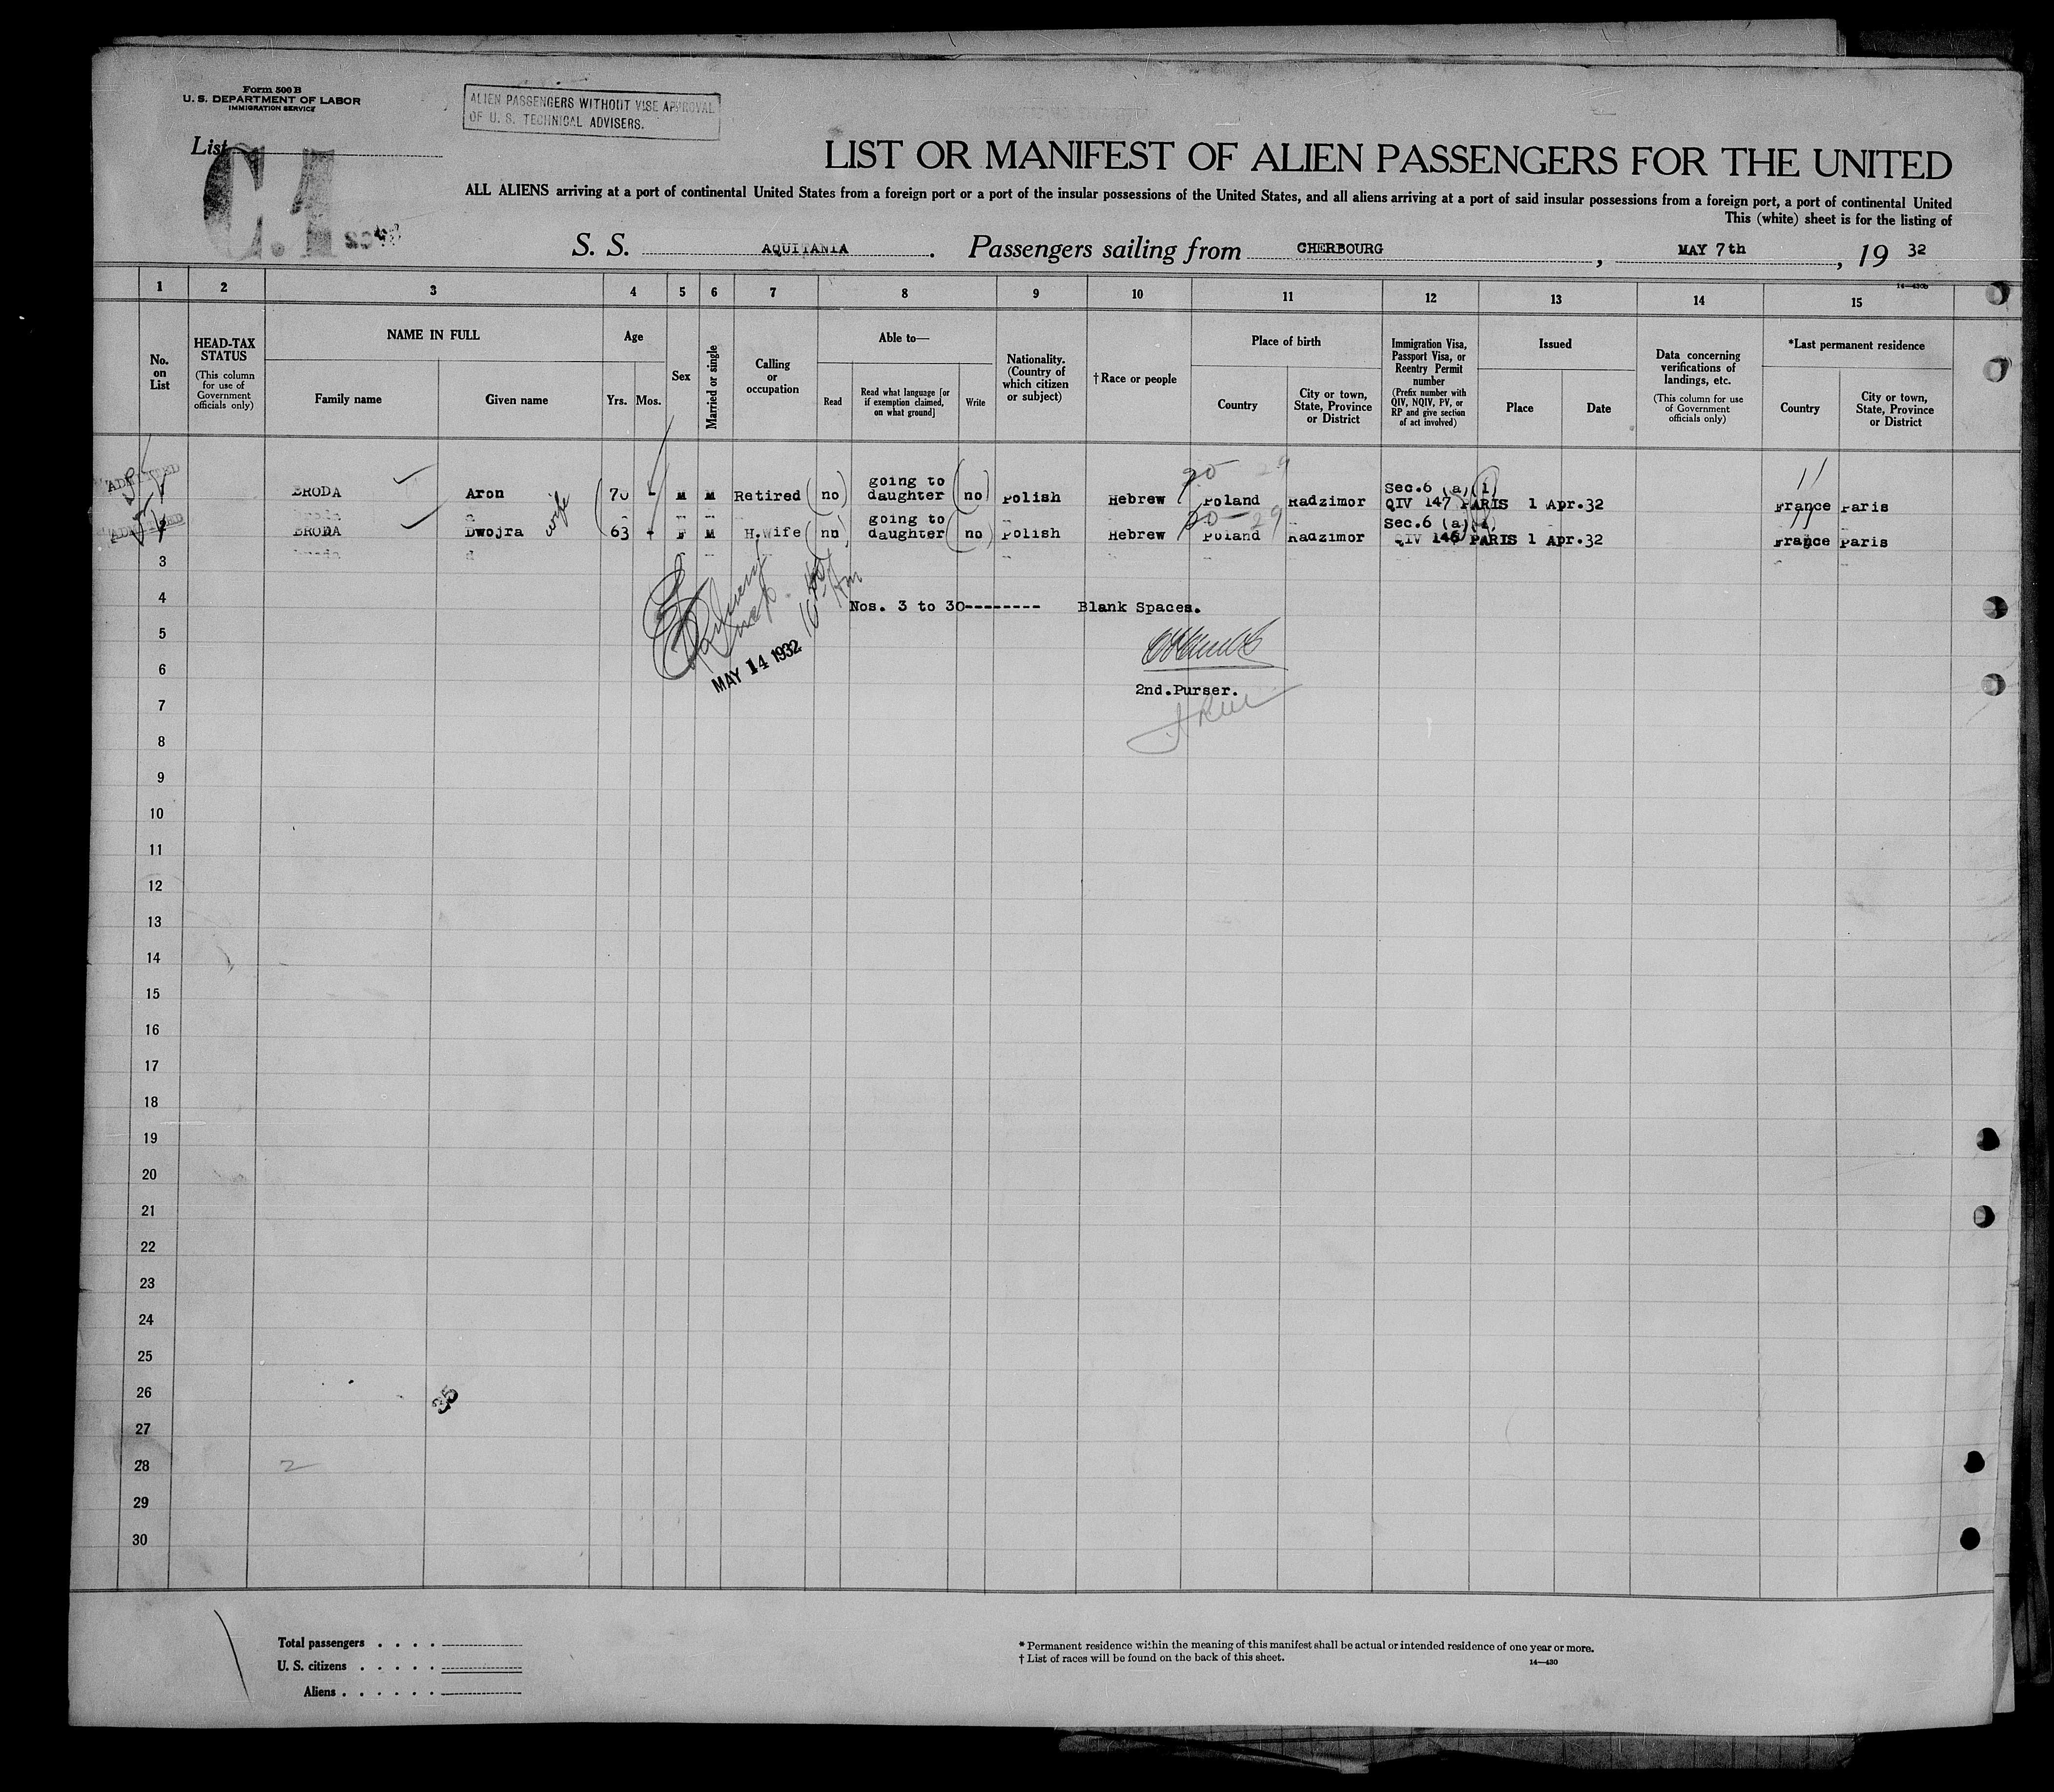 Form 500 B
U. S. DEPARTMENT OF LABOR
IMMIGRATION SERVICE
ALIEN PASSENGERS WITHOUT VISE APPROVAL
OF U. S. TECHNICAL ADVISERS.
List
C.1
LIST OR MANIFEST OF ALIEN PASSENGERS FOR THE UNITED
ALL ALIENS arriving at a port of continental United States from a foreign port or a port of the insular possessions of the United States, and all aliens arriving at a port of said insular possessions from a foreign port, a port of continental United
This (white) sheet is for the listing of
S. S. AQUITANIA. Passengers sailing from CHERBOURG, MAY 7th, 1932
14—430b
1 2 3 4 5 6 7 8 9 10 11 12 13 14 15
No. on List
HEAD-TAX STATUS
(This column for use of Government officials only)
NAME IN FULL
Family name
Given name
Age
Yrs. Mos.
Sex
Married or single
Calling or occupation
Able to—
Read
Read what language [or if exemption claimed, on what ground]
Write
Nationality. (Country of which citizen or subject)
†Race or people
Place of birth
Country
City or town, State, Province or District
Immigration Visa, Passport Visa, or Reentry Permit number
(Prefix number with QIV, NQIV, PV, or RP and give section of act involved)
Issued
Place
Date
Data concerning verifications of landings, etc.
(This column for use of Government officials only)
*Last permanent residence
Country
City or town, State, Province or District
ADMITTED
20 29
going to Sec.6 (a)(1)
BRODA Aron 70 - M M Retired (no) daughter (no) Polish Hebrew Poland Radzimor QIV 147 PARIS 1 Apr.32 France Paris
wife
ADMITTED
20 — 29
going to Sec.6 (a)(1)
2 BRODA Dwojra 63 - F M H.Wife (no) daughter (no) Polish Hebrew Poland Radzimor QIV 146 PARIS 1 Apr.32 France Paris
3
4 Nos. 3 to 30-------- Blank Spaces.
5
MAY 14 1932
6
2nd.Purser.
7
8
9
10
11
12
13
14
15
16
17
18
19
20
21
22
23
24
25
26
35
27
28
2
29
30
Total passengers . . . .
U. S. citizens . . . . .
Aliens . . . . . .
* Permanent residence within the meaning of this manifest shall be actual or intended residence of one year or more.
† List of races will be found on the back of this sheet.
14—430